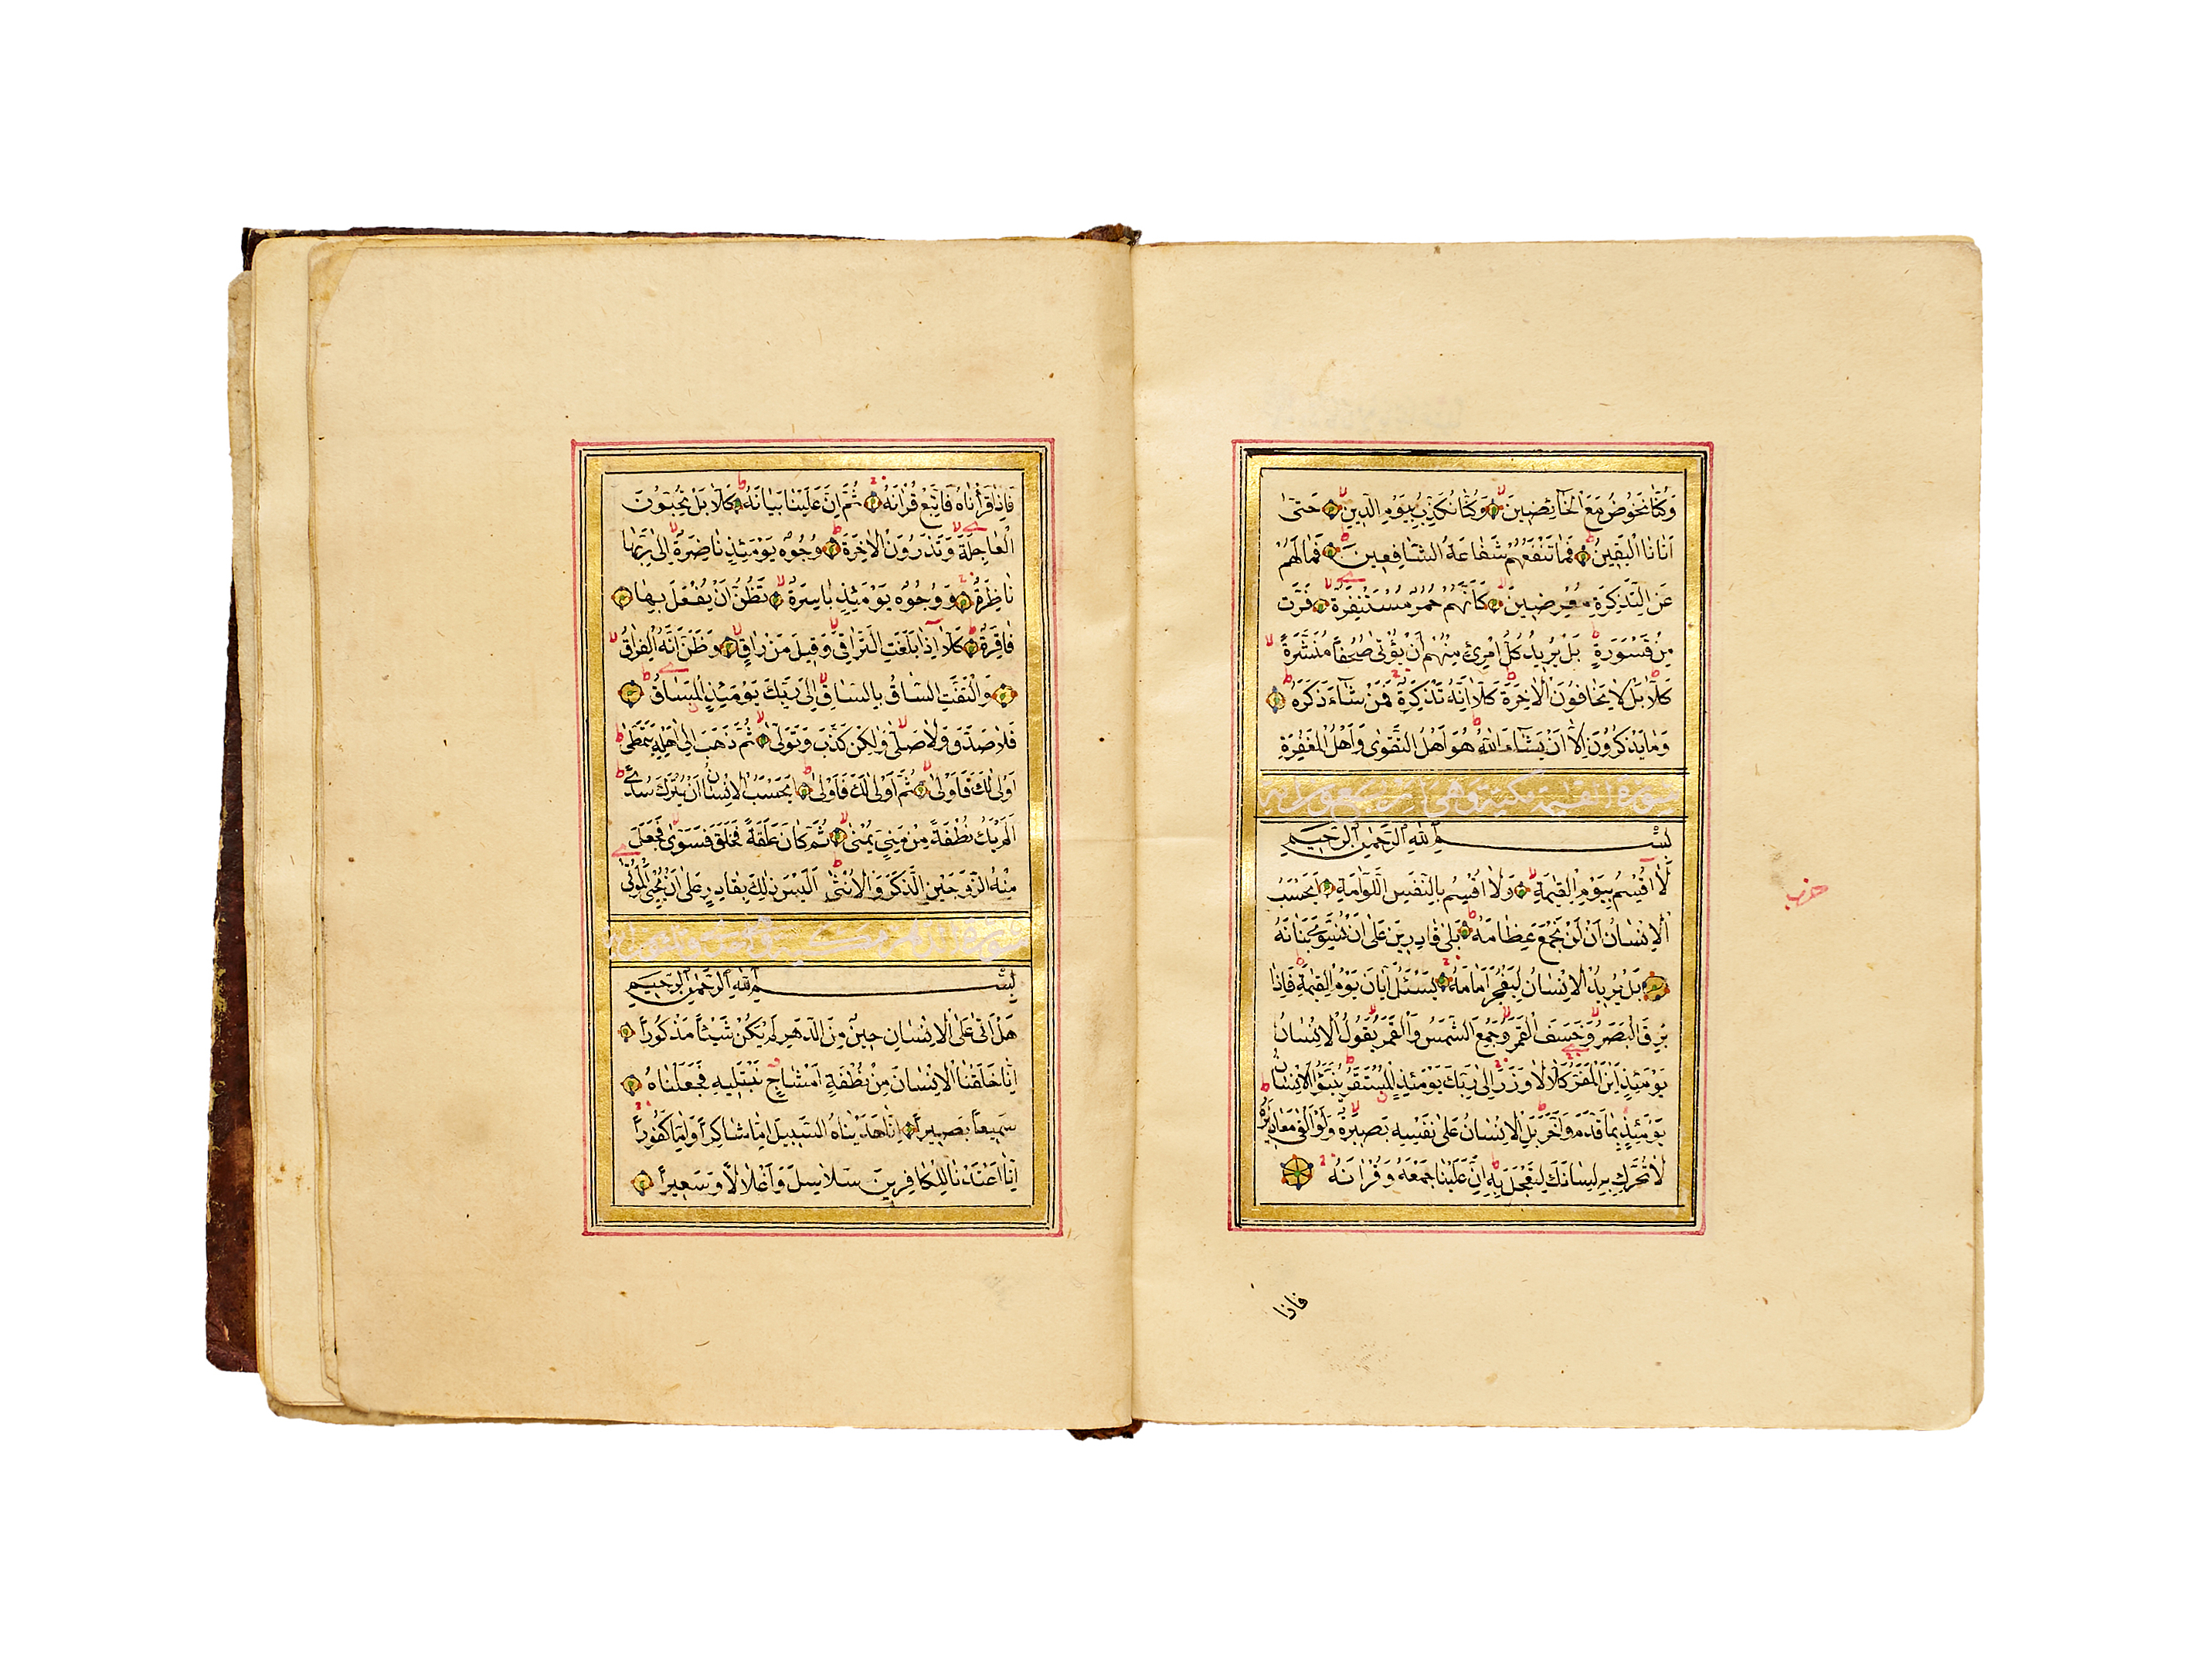 وَكُنَّا نَخُوضُ مَعَ الْخَآئِضِينَ وَكُنَّا نُكَذِّبُ بِيَوْمِ الدِّينِ حَتّٰى
اَتٰانَا الْيَقِينُ فَمَا تَنْفَعُهُمْ شَفَاعَةُ الشَّافِعِينَ فَمَا لَهُمْ
عَنِ التَّذْكِرَةِ مُعْرِضِينَ كَاَنَّهُمْ حُمُرٌ مُسْتَنْفِرَةٌ فَرَّتْ
مِنْ قَسْوَرَةٍ بَلْ يُرِيدُ كُلُّ امْرِئٍ مِنْهُمْ اَنْ يُؤْتٰى صُحُفاً مُنَشَّرَةً
كَلَّا بَلْ لَا يَخَافُونَ الْاٰخِرَةَ كَلَّا اِنَّهُ تَذْكِرَةٌ فَمَنْ شَآءَ ذَكَرَهُ
وَمَا يَذْكُرُونَ اِلَّا اَنْ يَشَآءَ اللّٰهُ هُوَ اَهْلُ التَّقْوٰى وَاَهْلُ الْمَغْفِرَةِ
سورة القيمة مكية وهى
بِسْمِ اللهِ الرَّحْمٰنِ الرَّحِيمِ
لَا اُقْسِمُ بِيَوْمِ الْقِيٰمَةِ وَلَا اُقْسِمُ بِالنَّفْسِ اللَّوَّامَةِ اَيَحْسَبُ
الْاِنْسَانُ اَنْ لَنْ نَجْمَعَ عِظَامَهُ بَلٰى قَادِرِينَ عَلٰى اَنْ نُسَوِّيَ بَنَانَهُ
بَلْ يُرِيدُ الْاِنْسَانُ لِيَفْجُرَ اَمَامَهُ يَسْئَلُ اَيَّانَ يَوْمُ الْقِيٰمَةِ فَاِذَا
بَرِقَ الْبَصَرُ وَخَسَفَ الْقَمَرُ وَجُمِعَ الشَّمْسُ وَالْقَمَرُ يَقُولُ الْاِنْسَانُ
يَوْمَئِذٍ اَيْنَ الْمَفَرُّ كَلَّا لَا وَزَرَ اِلٰى رَبِّكَ يَوْمَئِذٍ الْمُسْتَقَرُّ يُنَبَّؤُا الْاِنْسَانُ
يَوْمَئِذٍ بِمَا قَدَّمَ وَاَخَّرَ بَلِ الْاِنْسَانُ عَلٰى نَفْسِهِ بَصِيرَةٌ وَلَوْ اَلْقٰى مَعَاذِيرَهُ
لَا تُحَرِّكْ بِهِ لِسَانَكَ لِتَعْجَلَ بِهِ اِنَّ عَلَيْنَا جَمْعَهُ وَقُرْاٰنَهُ
حزب
فاذا
فَاِذَا قَرَأْنَاهُ فَاتَّبِعْ قُرْاٰنَهُ ثُمَّ اِنَّ عَلَيْنَا بَيَانَهُ كَلَّا بَلْ تُحِبُّونَ
الْعَاجِلَةَ وَتَذَرُونَ الْاٰخِرَةَ وُجُوهٌ يَوْمَئِذٍ نَاضِرَةٌ اِلٰى رَبِّهَا
نَاظِرَةٌ وَوُجُوهٌ يَوْمَئِذٍ بَاسِرَةٌ تَظُنُّ اَنْ يُفْعَلَ بِهَا
فَاقِرَةٌ كَلَّا اِذَا بَلَغَتِ التَّرَاقِيَ وَقِيلَ مَنْ رَاقٍ وَظَنَّ اَنَّهُ الْفِرَاقُ
وَالْتَفَّتِ السَّاقُ بِالسَّاقِ اِلٰى رَبِّكَ يَوْمَئِذٍ الْمَسَاقُ
فَلَا صَدَّقَ وَلَا صَلّٰى وَلٰكِنْ كَذَّبَ وَتَوَلّٰى ثُمَّ ذَهَبَ اِلٰى اَهْلِهِ يَتَمَطّٰى
اَوْلٰى لَكَ فَاَوْلٰى ثُمَّ اَوْلٰى لَكَ فَاَوْلٰى اَيَحْسَبُ الْاِنْسَانُ اَنْ يُتْرَكَ سُدًى
اَلَمْ يَكُ نُطْفَةً مِنْ مَنِيٍّ يُمْنٰى ثُمَّ كَانَ عَلَقَةً فَخَلَقَ فَسَوّٰى فَجَعَلَ
مِنْهُ الزَّوْجَيْنِ الذَّكَرَ وَالْاُنْثٰى اَلَيْسَ ذٰلِكَ بِقَادِرٍ عَلٰى اَنْ يُحْيِيَ الْمَوْتٰى
سورة الدهر
بِسْمِ اللهِ الرَّحْمٰنِ الرَّحِيمِ
هَلْ اَتٰى عَلَى الْاِنْسَانِ حِينٌ مِنَ الدَّهْرِ لَمْ يَكُنْ شَيْئاً مَذْكُوراً
اِنَّا خَلَقْنَا الْاِنْسَانَ مِنْ نُطْفَةٍ اَمْشَاجٍ نَبْتَلِيهِ فَجَعَلْنَاهُ
سَمِيعاً بَصِيراً اِنَّا هَدَيْنَاهُ السَّبِيلَ اِمَّا شَاكِراً وَاِمَّا كَفُوراً
اِنَّا اَعْتَدْنَا لِلْكَافِرِينَ سَلَاسِلَ وَاَغْلَالًا وَسَعِيراً